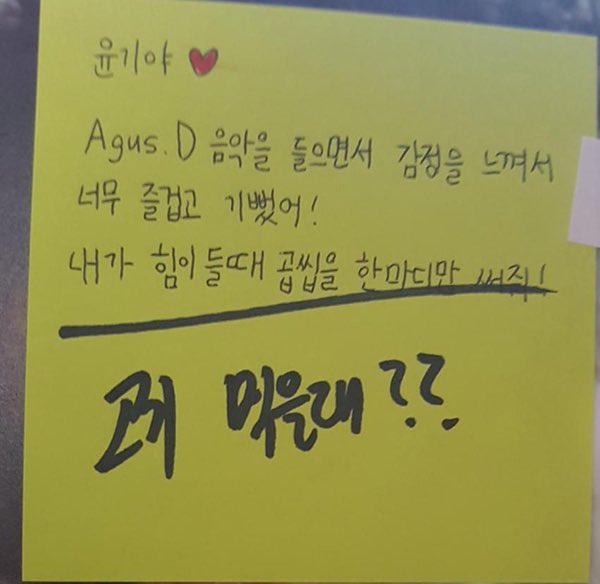 윤기야 ♥
Agus.D 음악을 들으면서 감정을 느껴서
너무 즐겁고 기뻤어!
내가 힘이들때 곱씹을 한마디만 써줘!
고기 먹을래??